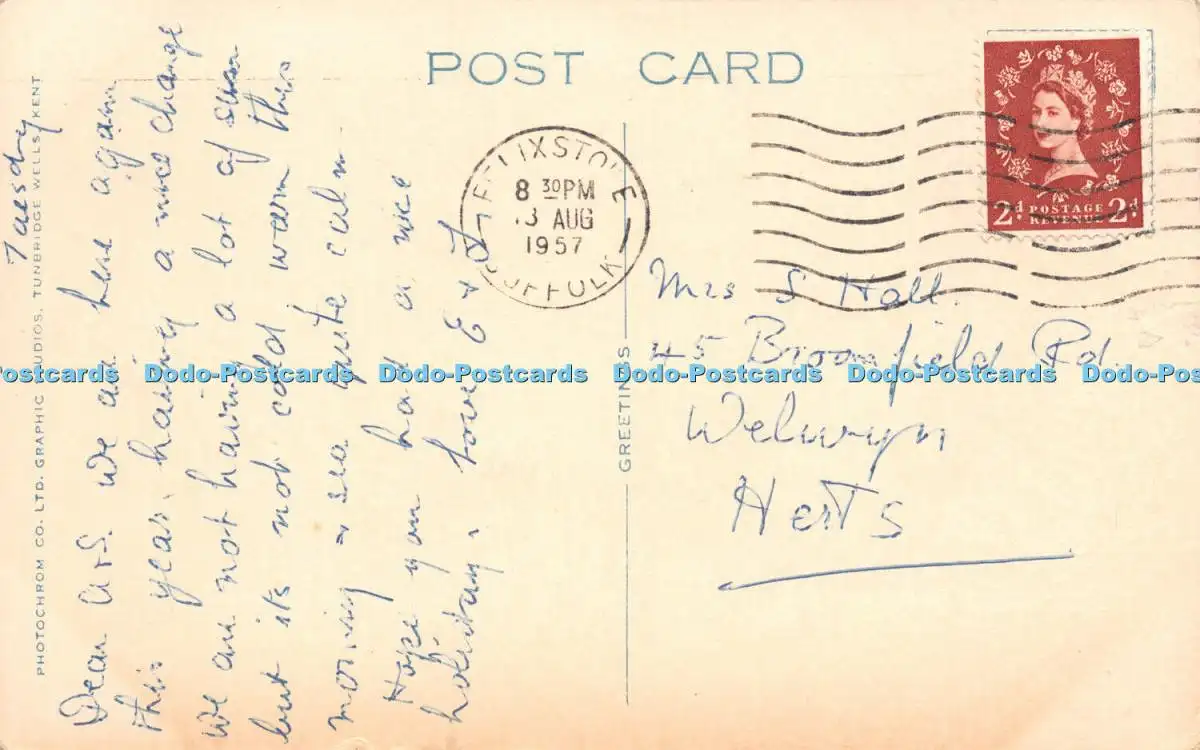 POST CARD
PHOTOCHROM CO. LTD. GRAPHIC STUDIOS, TUNBRIDGE WELLS, KENT
Tuesday
Dear A & S. we are here again
this year, having a nice change
we are not having a lot of sun
but its not cold warm this
morning & sea quite calm
Hope you had a nice
holiday. love E & J
GREETINGS
FELIXSTOWE
8 30PM
13 AUG
1957
SUFFOLK
2d POSTAGE REVENUE 2d
Mrs S Hall.
45 Broomfield Rd.
Welwyn
Herts
Dodo-Postcards Dodo-Postcards Dodo-Postcards Dodo-Postcards Dodo-Postcards